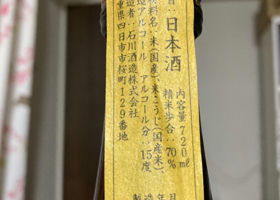 日本酒
内容量720㎖
精米歩合:70%
料名:米(国産)、米こうじ(国産米)、
造アルコール アルコール分:15度
造者:石川酒造株式会社
重県四日市市桜町129番地
製造年月